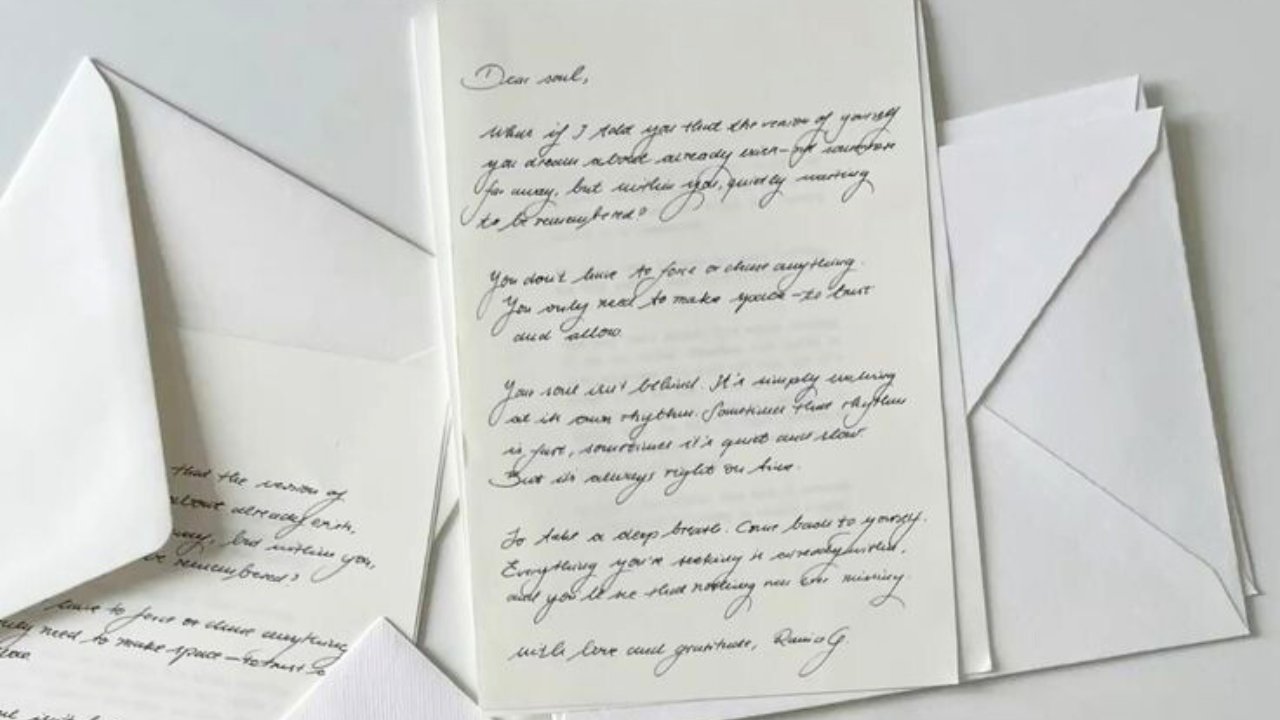 Dear soul,
What if I told you that the version of yourself
you dream about already exist—not somewhere
far away, but within you, quietly waiting
to be remembered?
You don't have to force or chase anything.
You only need to make space—to trust
and allow.
Your soul isn't behind. It's simply moving
at its own rhythm. Sometimes that rhythm
is fast, sometimes it's quiet and slow.
But it's always right on time.
So take a deep breath. Come back to yourself.
Everything you're seeking is already within,
and you'll see that nothing was ever missing.
with love and gratitude, Rania G.
that the version of
about already exist,
but within you,
be remembered?
have to force or chase anything
need to make space—to trust